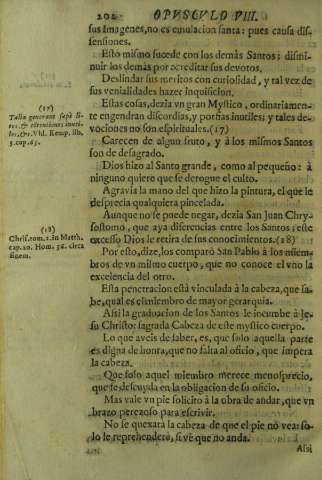 202 OPUSCULO VIII.
sus Imagenes, no es emulacion santa: pues causa dis-
sensiones.
Esto mismo sucede con los demás Santos: disminuir
los demás por acreditar sus devotos.
Deslindar sus meritos con curiosidad, y tal vez de
sus venialidades hazer inquisicion.
Estas cosas, dezia vn gran Mystico, ordinariamen-
te engendran discordias, y porfias inutiles; y tales de-
vociones no son espirituales. (17)
Carecen de algun fruto, y à los mismos Santos
son de desagrado.
Dios hizo al Santo grande, como al pequeño: à
ninguno quiere que se derogue el culto.
Agravia la mano del que hizo la pintura, el que le
desprecia qualquiera pincelada.
Aunque no se puede negar, dezia San Juan Chry-
sostomo, que aya diferencias entre los Santos; este
excesso Dios le retira de sus conocimientos. (18)
Por esto, dize, los comparò San Pablo à los miem-
bros de vn mismo cuerpo, que no conoce el vno la
excelencia del otro.
Esta penetracion està vinculada à la cabeza, que sa-
be, qual es el miembro de mayor gerarquia.
Assi la graduacion de los Santos le incumbe à Je-
su Christo sagrada Cabeza de este mystico cuerpo.
Lo que aveis de saber, es, que solo aquella parte
es digna de honra, que no falta al oficio, que impera
la cabeza.
Que solo aquel miembro merece menosprecio,
que se descuyda en la obligacion de su oficio.
Mas vale vn pie solicito à la obra de andar, que vn
brazo perezoso para escrivir.
No se quexarà la cabeza de que el pie no vea: so-
lo le reprehenderà, si vè que no anda.
Assi
(17)
Talia generant sæpè li-
tes, & contentiones inuti-
les, &c. Vid. Kemp. lib.
3. cap. 63.
(18)
Chris. tom. 2. in Matth.
cap. 20. Hom. 36. circa
finem.